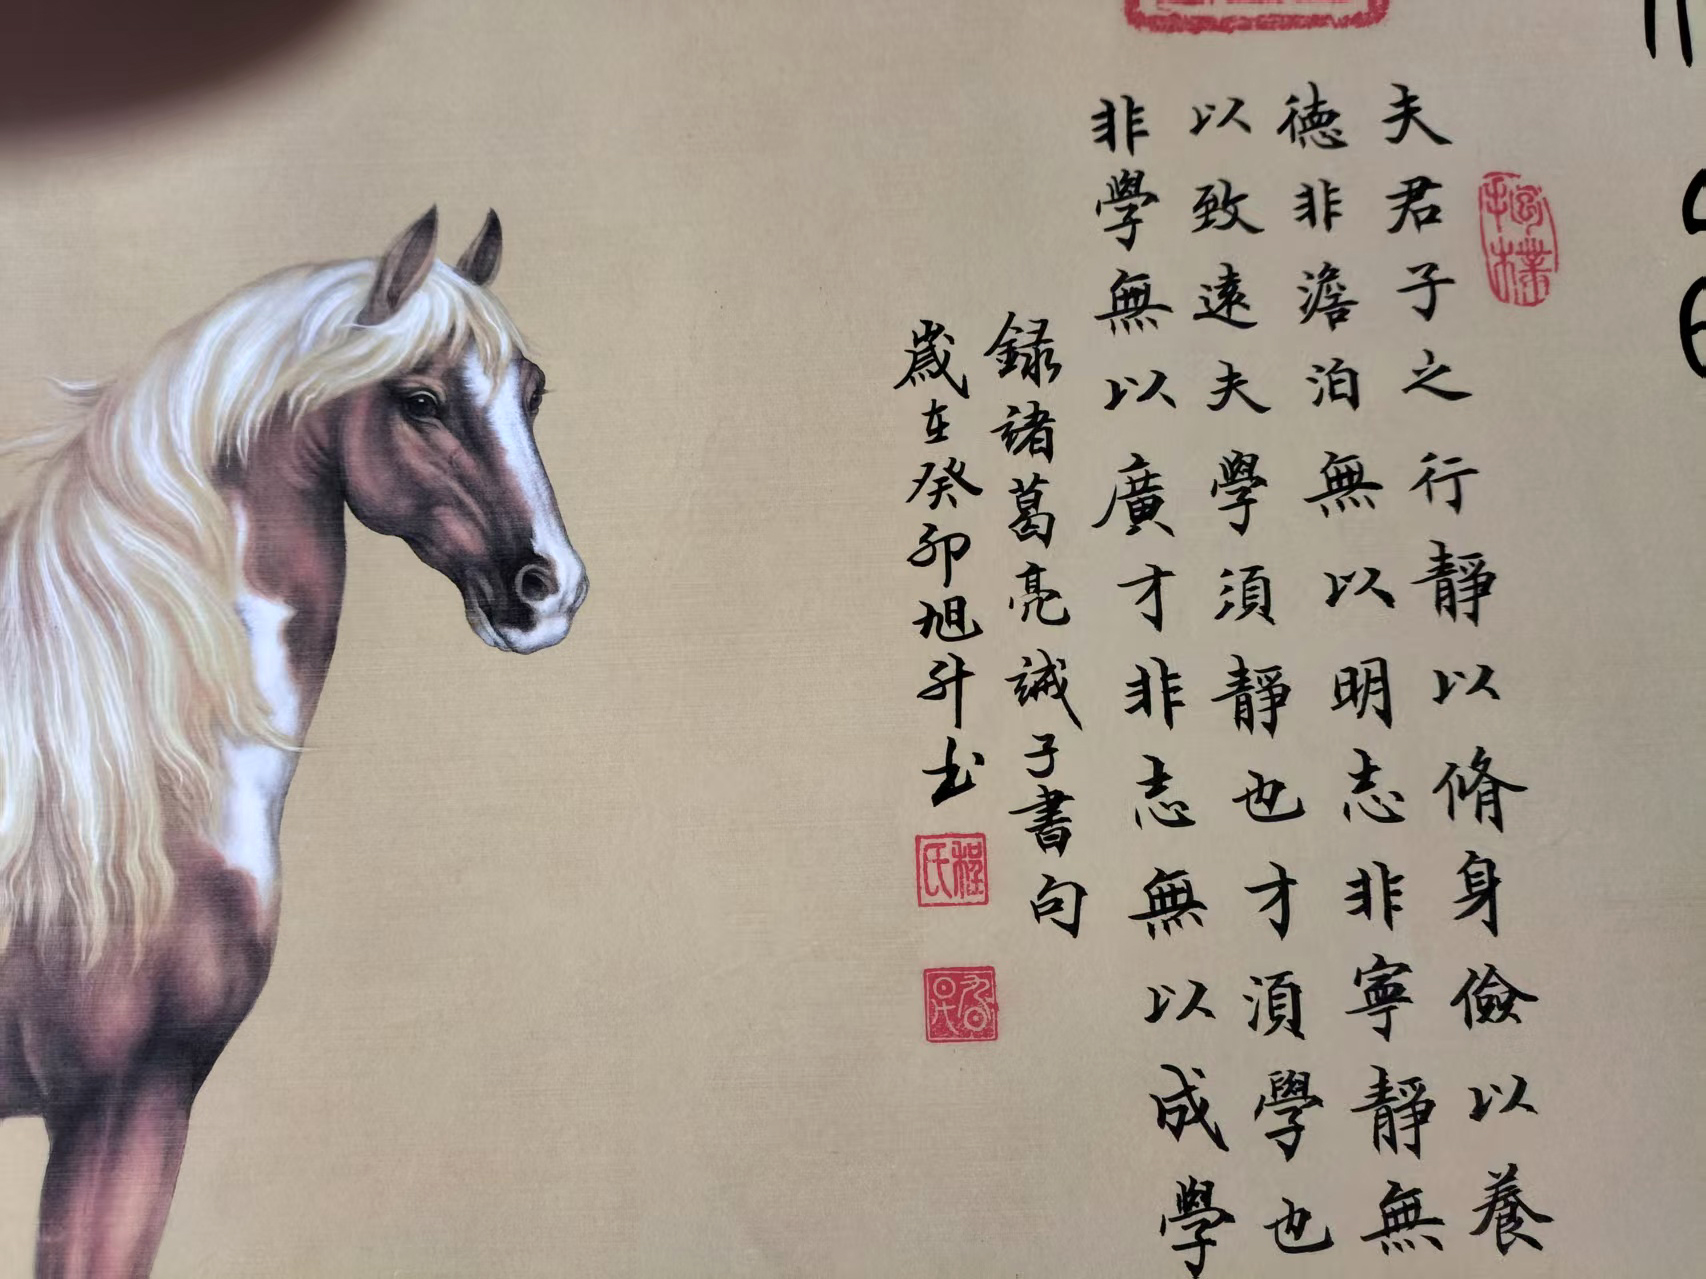 夫君子之行靜以脩身儉以養
德非澹泊無以明志非寧靜無
以致遠夫學須靜也才須學也
非學無以廣才非志無以成學
録諸葛亮誡子書句
歲在癸卯旭升书
程氏